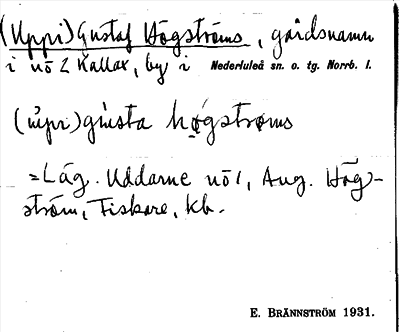 (Uppi) Gustaf Högströms, gårdsnamn
i nō 2 Kallax, by i Nederluleå sn. o. tg. Norrb. l.
(ùpi) gùsta hǫ́gstrøms
=Läg. Uddarne nō 1, Aug. Hög-
ström, Fiskare, kb.
E. BRÄNNSTRÖM 1931.